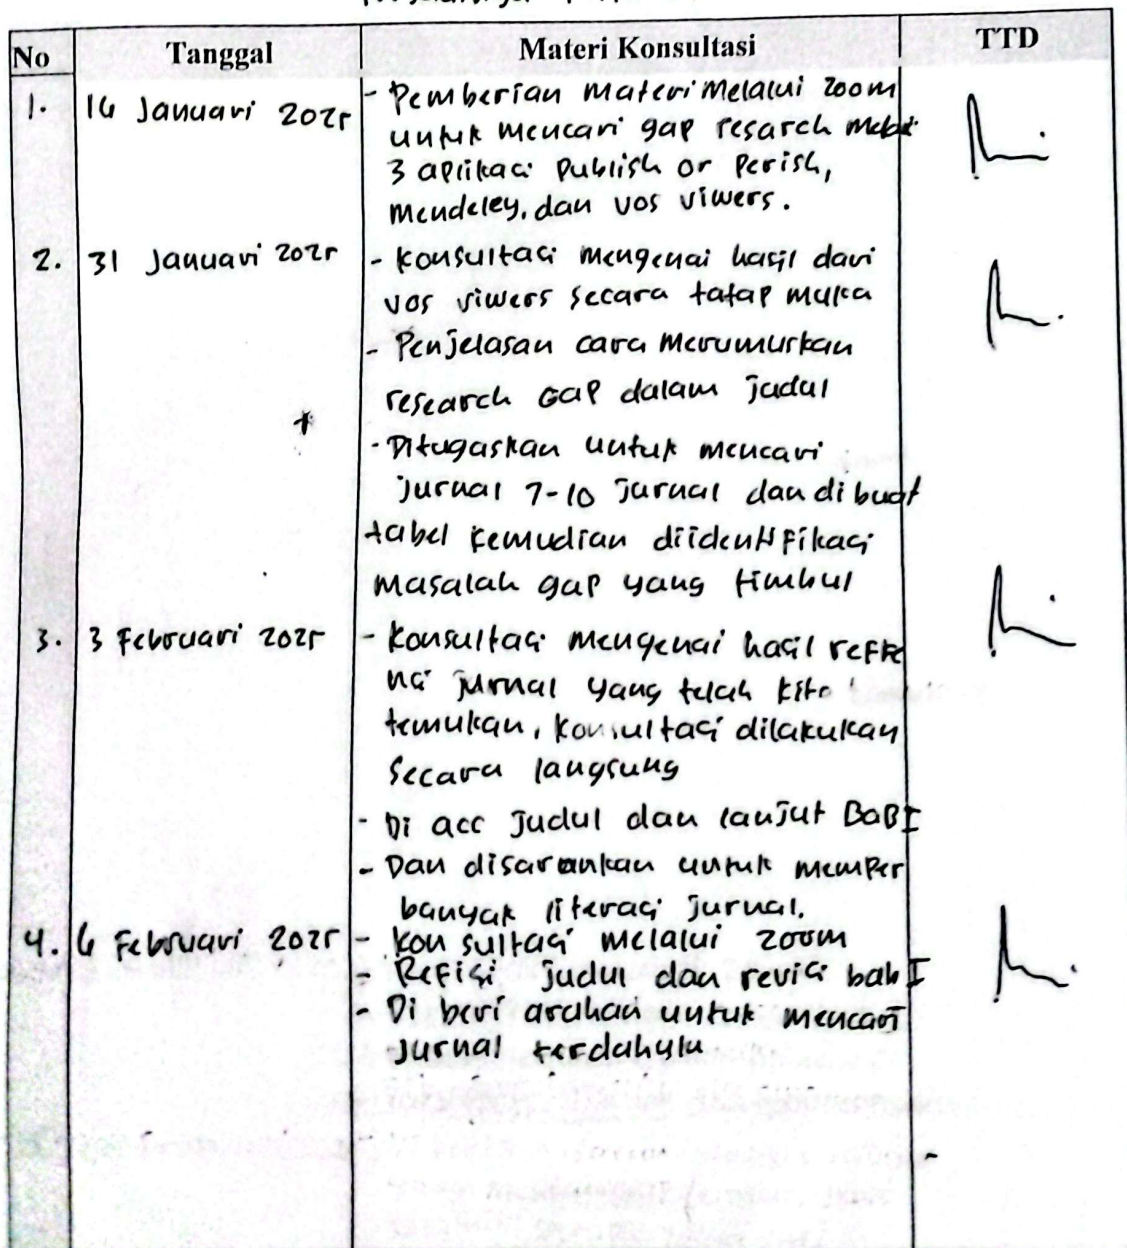 No Tanggal Materi Konsultasi TTD
1. 16 Januari 2025 - Pemberian Materi Melalui zoom
untuk mencari gap resarch
3 aplikasi Publish or Perish,
Mendeley, dan vos viwers.
2. 31 Januari 2025 - Konsultasi mengenai hasil dari
vos viwers secara tatap muka
- Penjelasan cara merumuskan
research GaP dalam judul
- Ditugaskan untuk mencari
jurnal 7-10 jurnal dan dibuat
tabel kemudian diidentifikasi
masalah gap yang timbul
3. 3 Februari 2025 - Konsultasi mengenai hasil refre
nsi jurnal yang telah kita
temukan, konsultasi dilakukan
secara langsung
- Di acc judul dan lanjut BaB I
- Dan disarankan untuk memper
banyak literasi jurnal.
4. 6 Februari 2025 - Konsultasi melalui zoom
- Refisi judul dan revisi bab I
- Di beri arahan untuk mencari
jurnal terdahulu